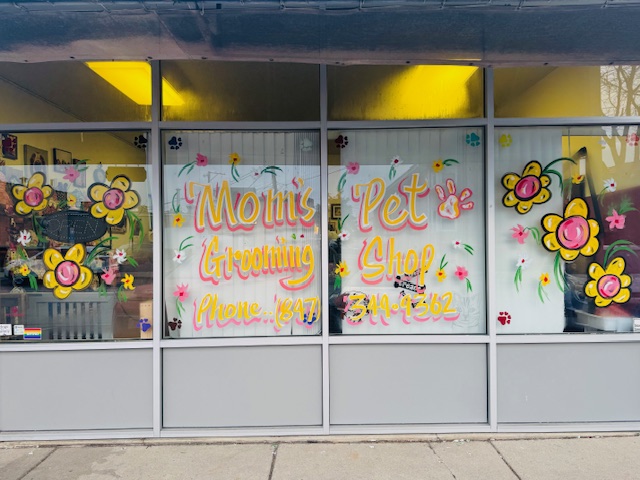 "Mom's "Pet
Grooming Shop
Phone..(847) 344-9362